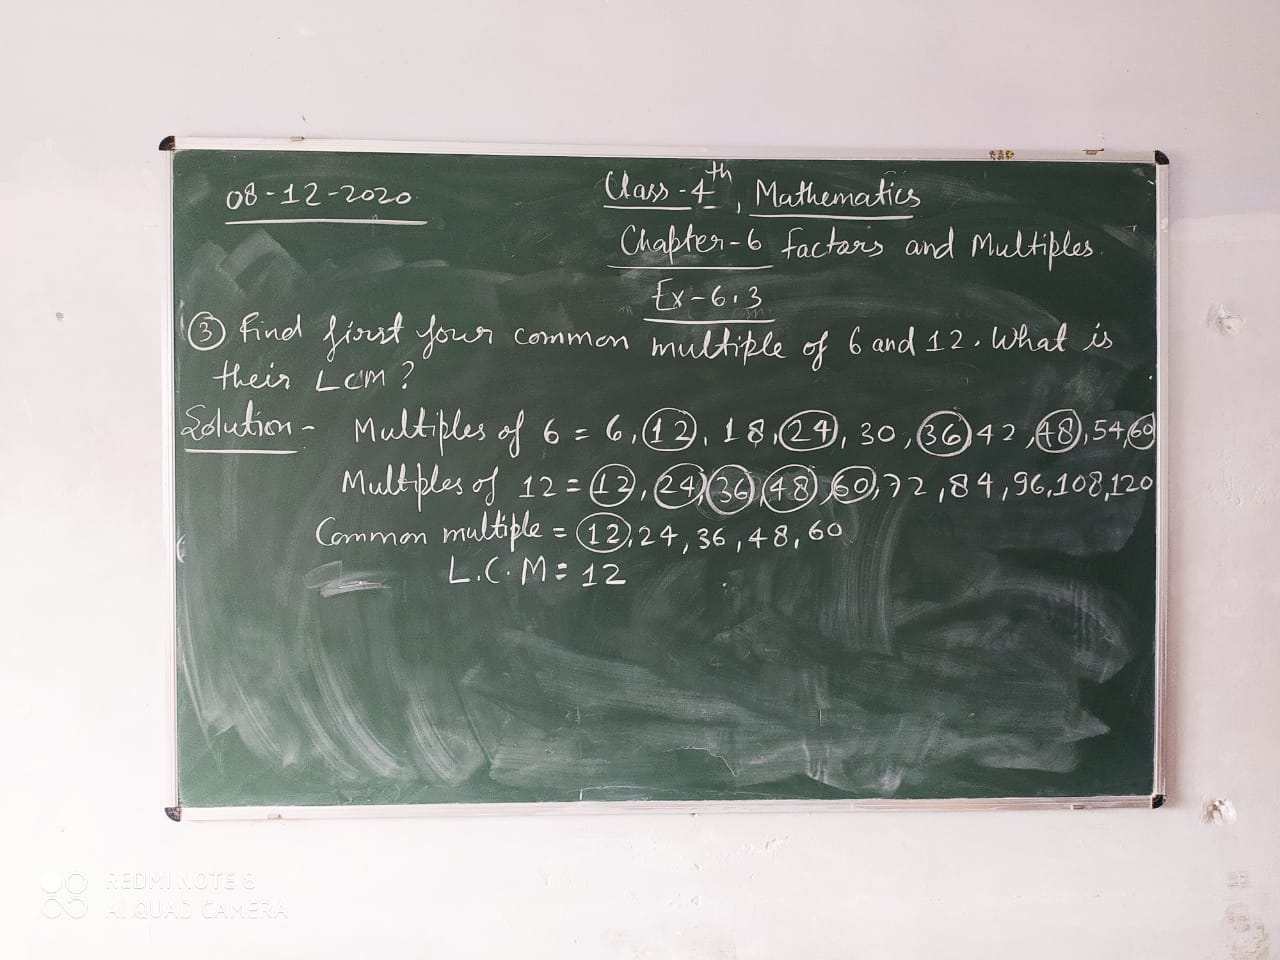 08-12-2020
Class-4th, Mathematics
Chapter-6 Factors and Multiples.
Ex-6.3
③ Find first four common multiple of 6 and 12. What is
their LCM?
Solution- Multiples of 6 = 6, 12, 18, 24, 30, 36, 42, 48, 54, 60
Multiples of 12 = 12, 24, 36, 48, 60, 72, 84, 96, 108, 120
Common multiple = 12, 24, 36, 48, 60
L.C.M = 12
REDMI NOTE 8
AI QUAD CAMERA